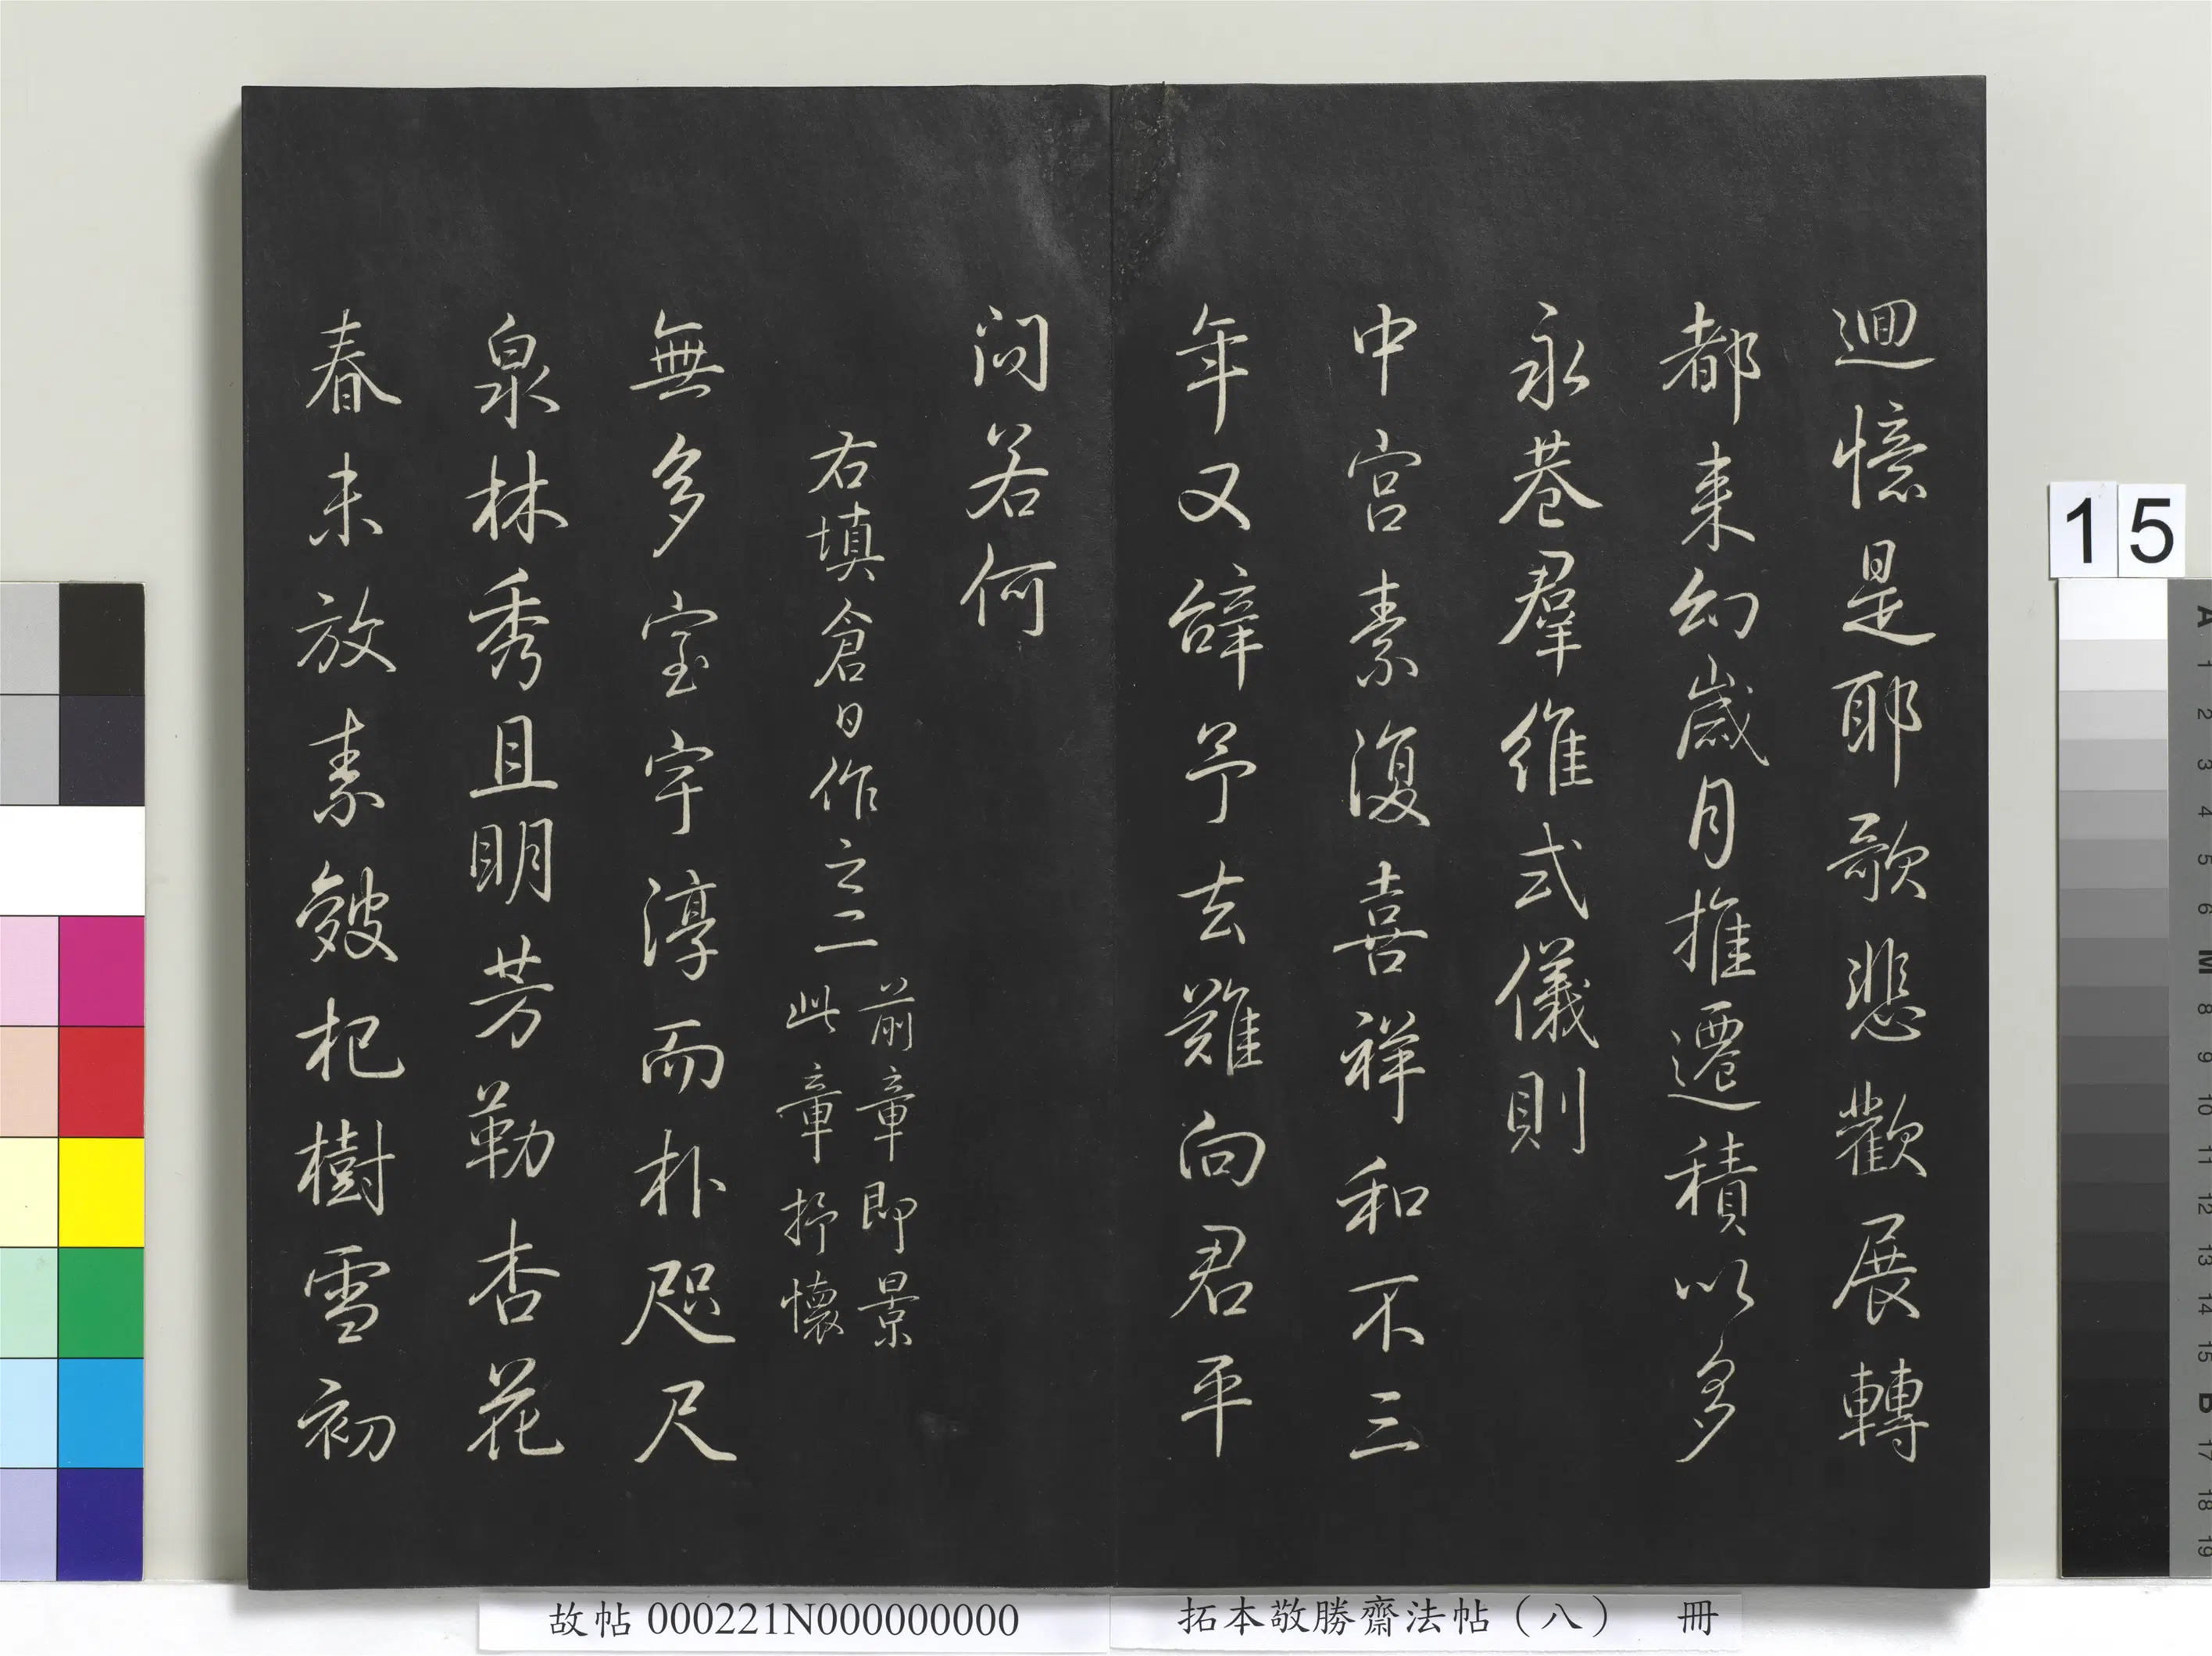 迴憶是耶歌悲歡展轉
都來幻歲月推遷積以多
永巷羣維式儀則
中宮素復喜祥和不三
年又辭予去難向君平
问若何
右填倉日作之二
前章即景
此章抒懷
無多室宇淳而朴咫尺
泉林秀且明芳勒杏花
春未放素皴杞樹雪初
15
故帖 000221N000000000
拓本敬勝齋法帖（八） 冊
A
1
2
3
4
5
6
M
8
9
10
11
12
13
14
15
B
17
18
19